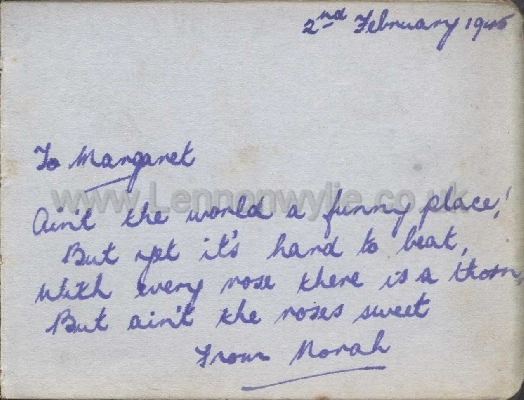 2nd February 1945
To Margaret
www.Lennonwylie.co.uk
Ain't the world a funny place!
But yet it's hard to beat,
With every rose there is a thorn,
But ain't the roses sweet
From Norah